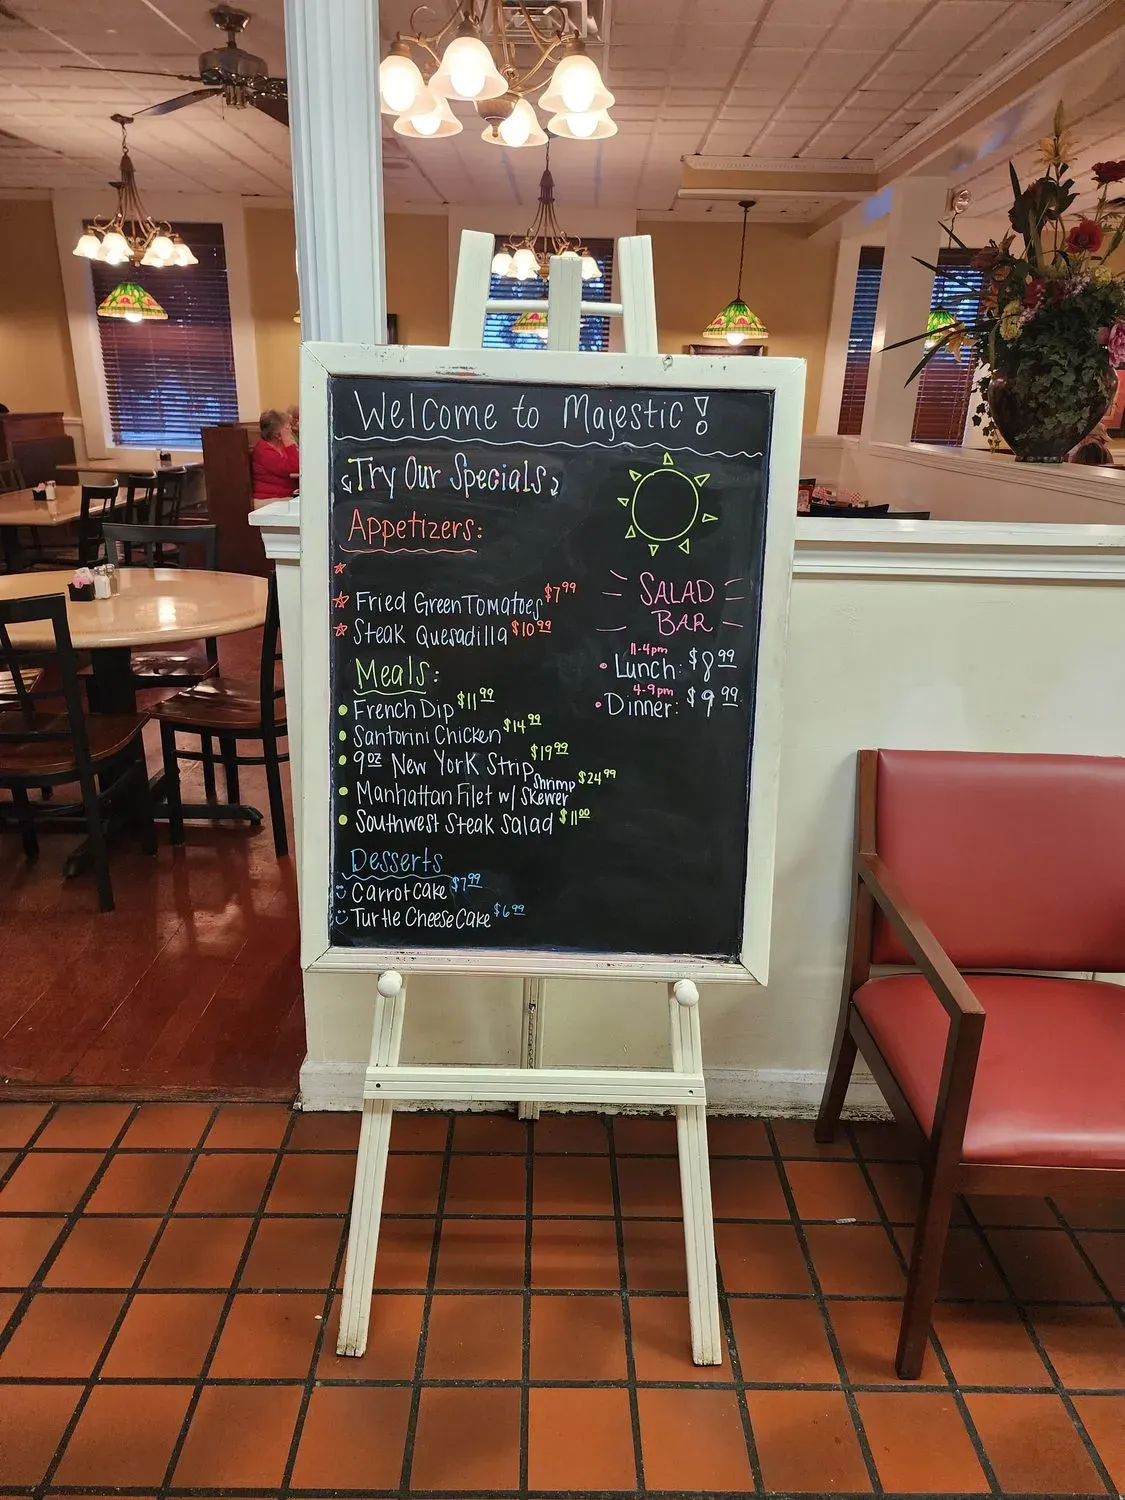 Welcome to Majestic!
Try Our Specials
Appetizers:
Fried Green Tomatoes $7.99
Steak Quesadilla $10.99
Meals:
French Dip $11.99
Santorini Chicken $14.99
9oz New York Strip $19.99
Manhattan Filet w/ Shrimp Skewer $24.99
Southwest Steak Salad $11.00
Desserts
Carrot Cake $7.99
Turtle Cheese Cake $6.99
SALAD
BAR
11-4pm
Lunch: $8.99
4-9pm
Dinner: $9.99